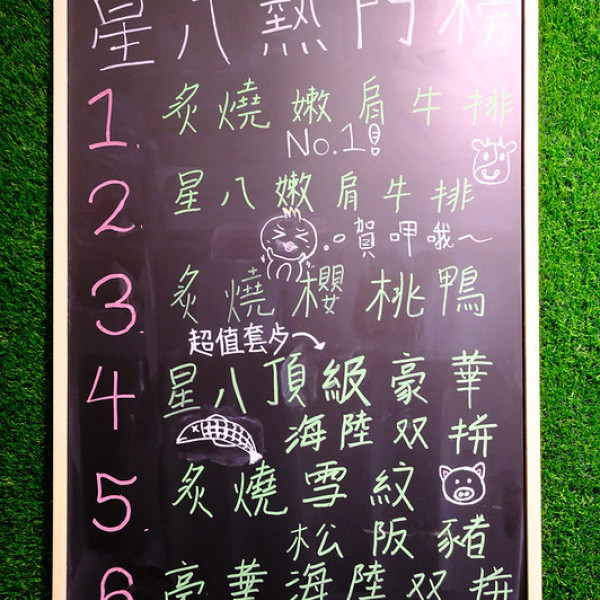 星八熱門榜
1. 炙燒嫩肩牛排
No.1!
2. 星八嫩肩牛排
賀呷哦~
3. 炙燒櫻桃鴨
超值套歺
4 星八頂級豪華
海陸双拼
5. 炙燒雪紋
松阪豬
6 豪華海陸双拼